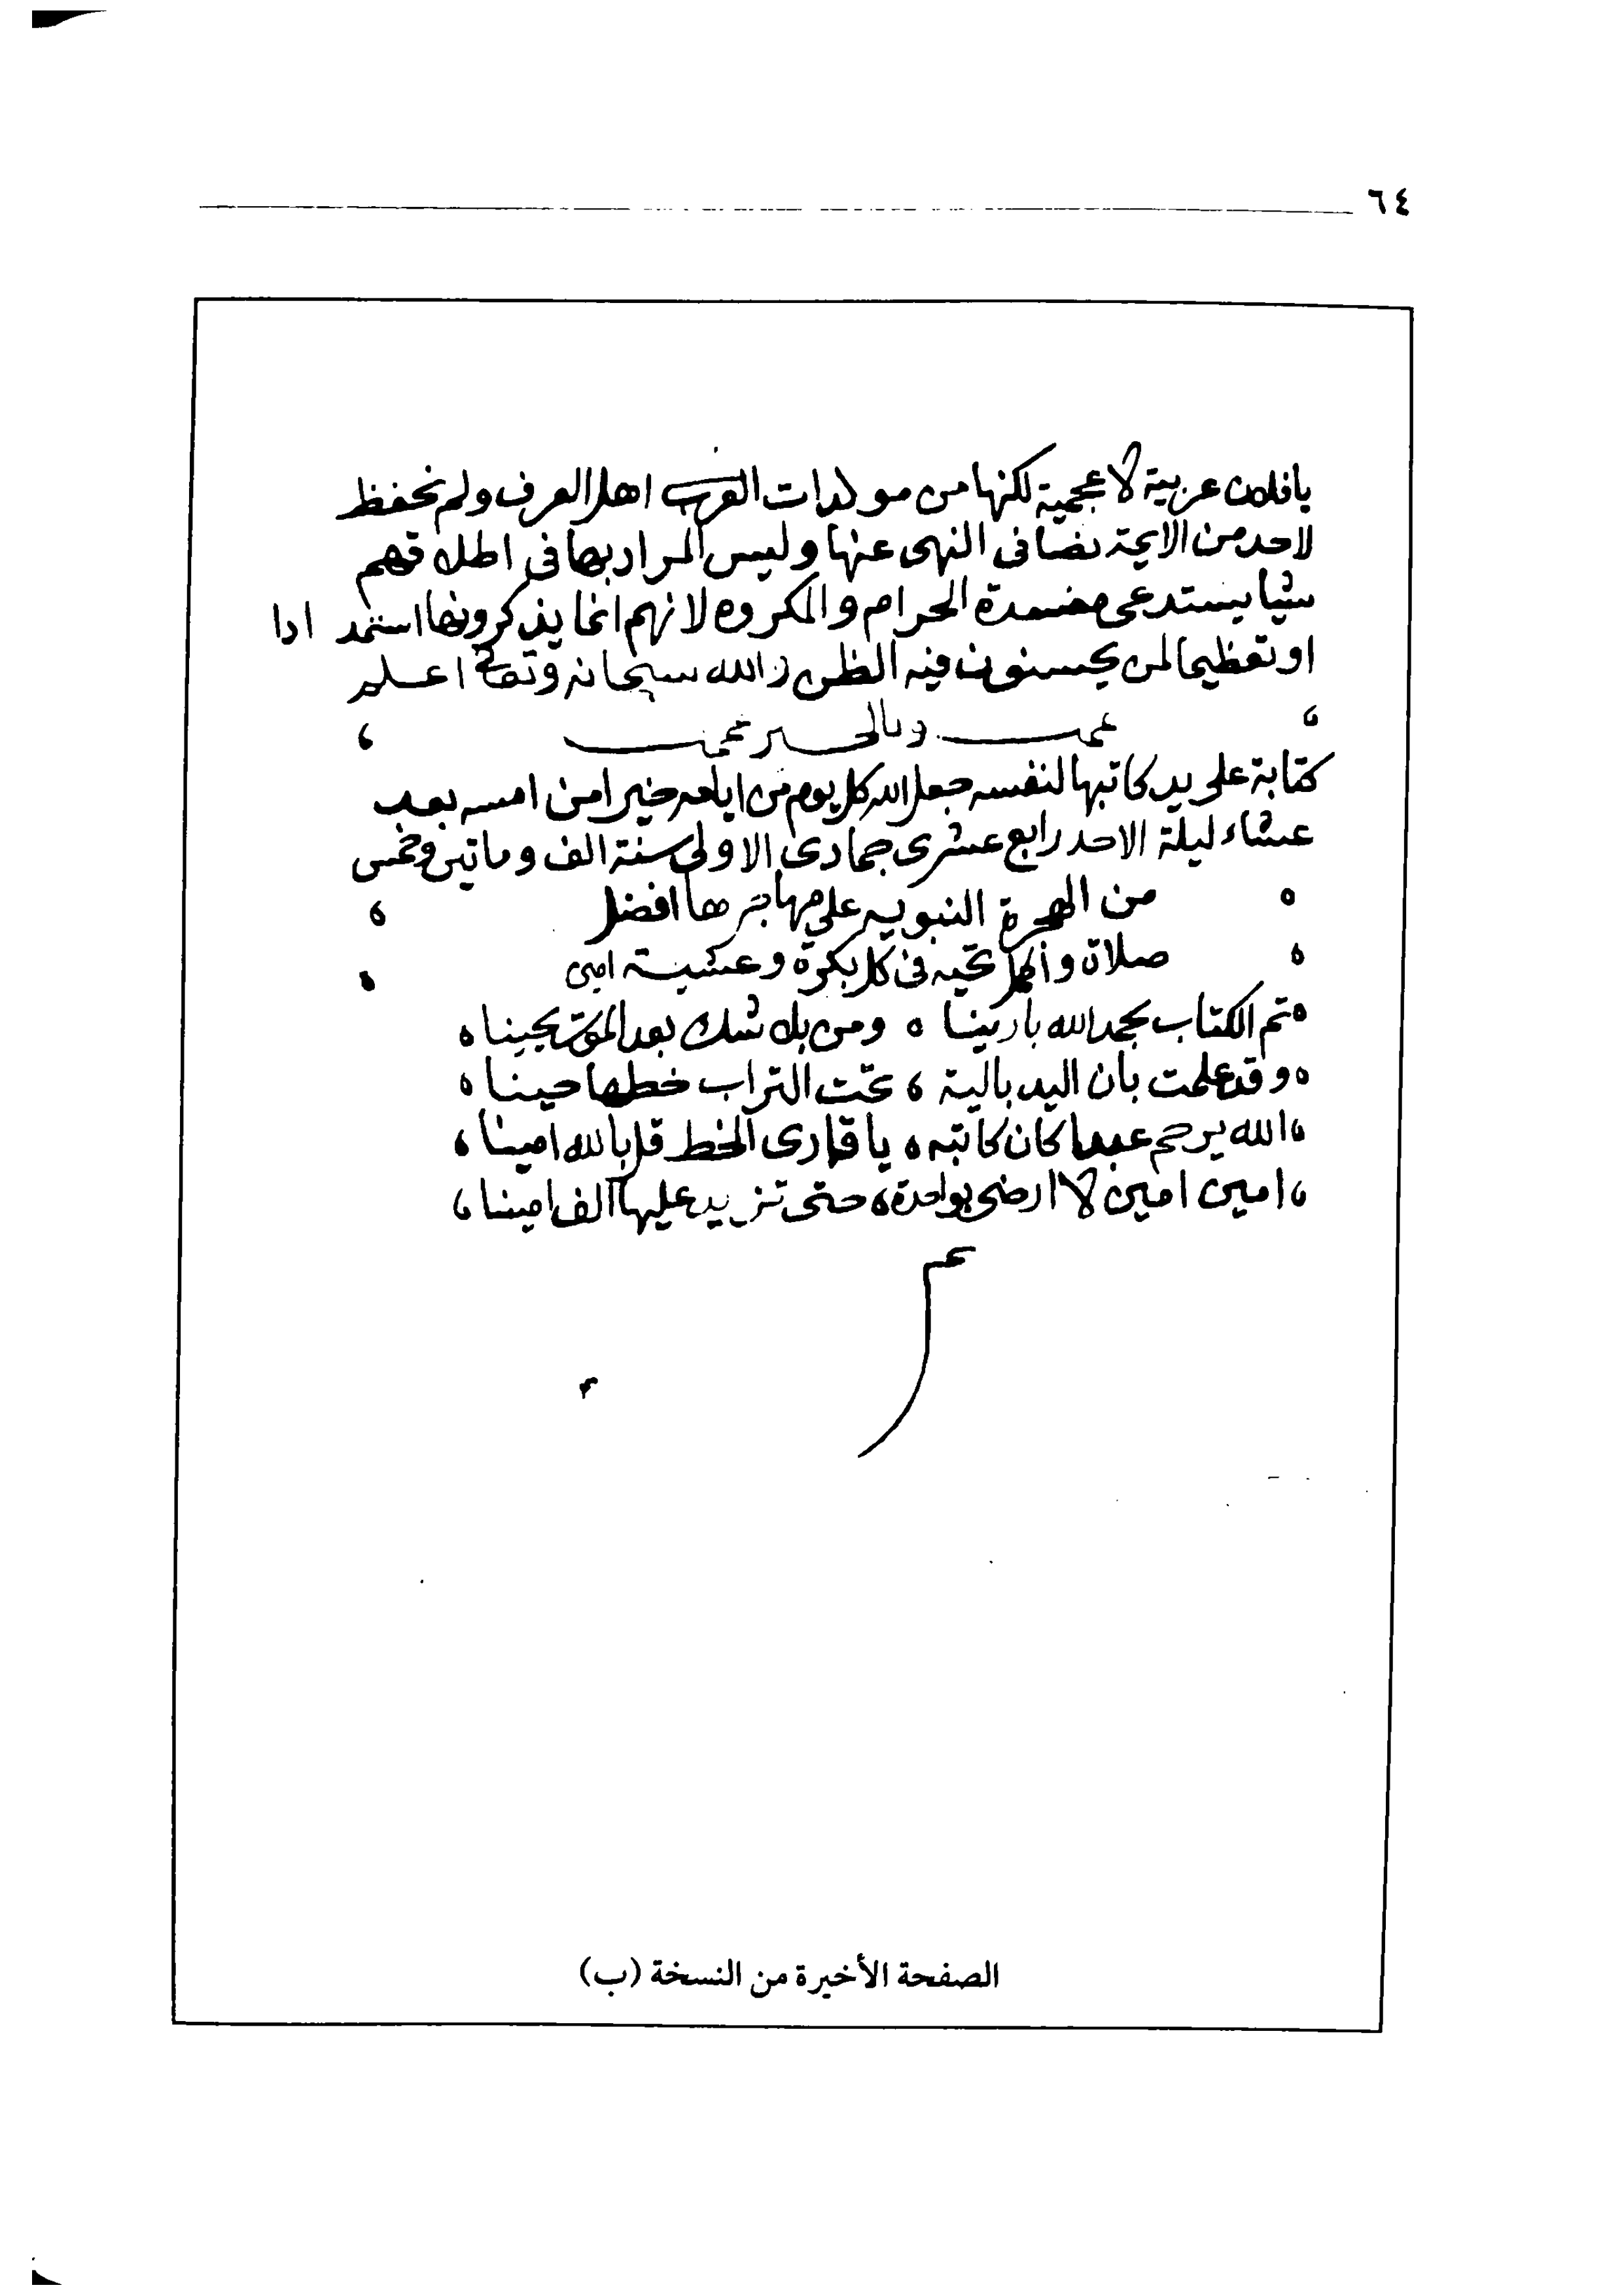 ٦٤
يا فلان عربية لا عجمية لكنها من مولدات العرب اهل العرف ولم يحفظ
لاحد من الايمة نصا فى النهى عنها وليس المراد بها فى اطلاقهم
شيا يستدعى مفسدة الحرام والمكروه لانهم انما يذكرونها استمدادا
او تعظيما لمن يحسنون فيه الظن والله سبحانه وتعالى اعلم
تمت وبالخير عمت
كتابة على يد كاتبها لنفسه جعل الله كل يوم من ايامه خيرا من امسه بعد
عشاء ليلة الاحد رابع عشرى جمادى الاولى سنة الف وماتين وخمس
من الهجرة النبويه على مهاجرها افضل
صلاة واكمل تحيه فى كل بكرة وعشية امين
تم الكتاب بحمد الله بارينا ه ومن بلا شك بعد الموت يحيينا ه
ه وقد علمت بان اليد بالية ، تحت التراب خطها حينا ه
، الله يرحم عبدا كان كاتبه ه يا قارى الخط قل بالله امينا ،
، امين امين لا ارضى بواحدة ، حتى تزيد عليها الف امينا ،
الصفحة الأخيرة من النسخة (ب)